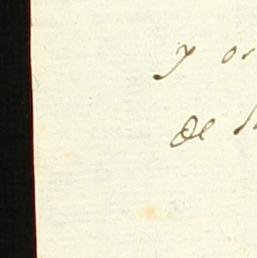 y os
de